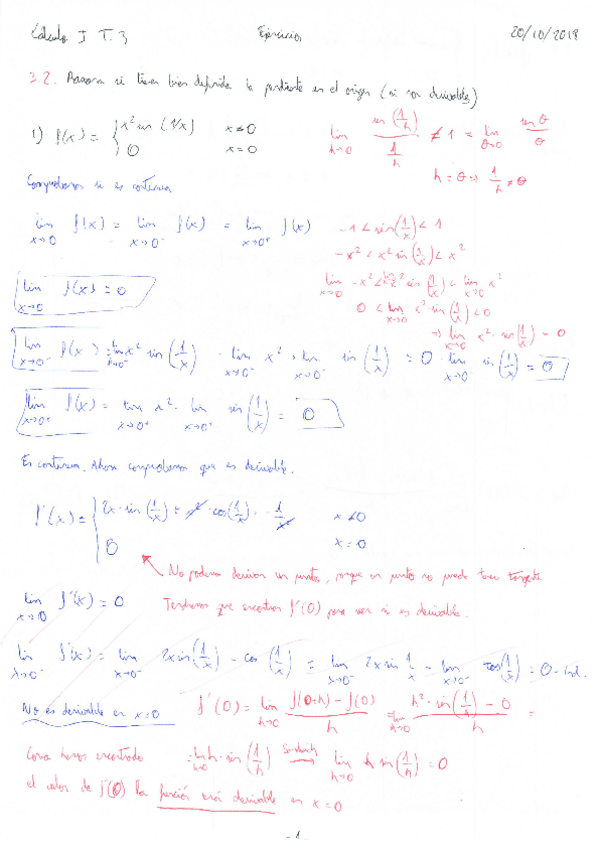 Cálculo I T.3 Ejercicios 20/10/2018
3.2. Razona si tienen bien definida la pendiente en el origen (si son derivables)
1) f(x) = { x² sin (1/x) x≠0
0 x=0
lim h→0 sin(1/h) / (1/h) ≠ 1 = lim θ→0 sin θ / θ
h = θ ⇒ 1/h ≠ θ
Comprobamos si es continua
lim x→0 f(x) = lim x→0⁻ f(x) = lim x→0⁺ f(x)
-1 < sin(1/x) < 1
-x² < x² sin(1/x) < x²
lim x→0 f(x) = 0
lim x→0 -x² < lim x² sin(1/x) < lim x→0 x²
0 < lim x→0 x² sin(1/x) < 0
⇒ lim x→0 x² · sin(1/x) = 0
lim x→0⁻ f(x) = lim x² sin(1/x) = lim x→0⁻ x² · lim x→0⁻ sin(1/x) = 0 · lim x→0⁻ sin(1/x) = 0
lim x→0⁺ f(x) = lim x→0⁺ x² · lim x→0⁺ sin(1/x) = 0
Es continua. Ahora comprobamos que es derivable.
f'(x) = { 2x · sin(1/x) + x² · cos(1/x) · -1/x² x≠0
0 x=0
No podemos derivar un punto, porque un punto no puede tener tangente
lim x→0 f'(x) = 0 Tendremos que encontrar f'(0) para ver si es derivable.
lim x→0⁻ f'(x) = lim x→0⁻ 2x sin(1/x) - cos(1/x) = lim x→0⁻ 2x sin 1/x - lim x→0⁻ cos(1/x) = 0 - ind.
No es derivable en x=0 f'(0) = lim h→0 f(0+h) - f(0) / h = lim h→0 h² · sin(1/h) - 0 / h =
Como hemos encontrado = lim h→0 h · sin(1/h) Sandwich → lim h→0 h sin(1/h) = 0
el valor de f'(0) la función será derivable en x=0
- 1 -